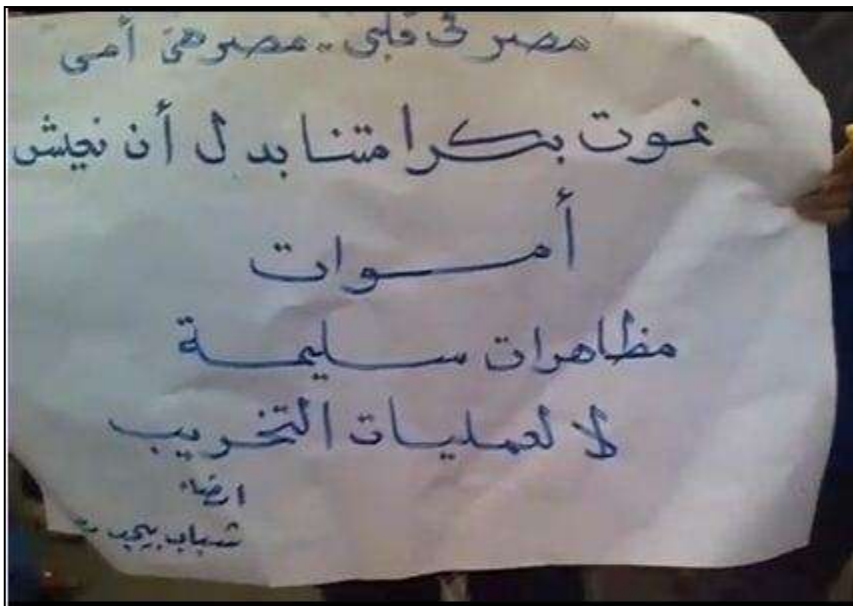 مصر فى قلبى .. مصر هى أمى
نموت بكرامتنا بدل أن نعيش
أمـــوات
مظاهرات سـليمـة
لا لعمليـات التخريب
امضاء
شباب بيحب